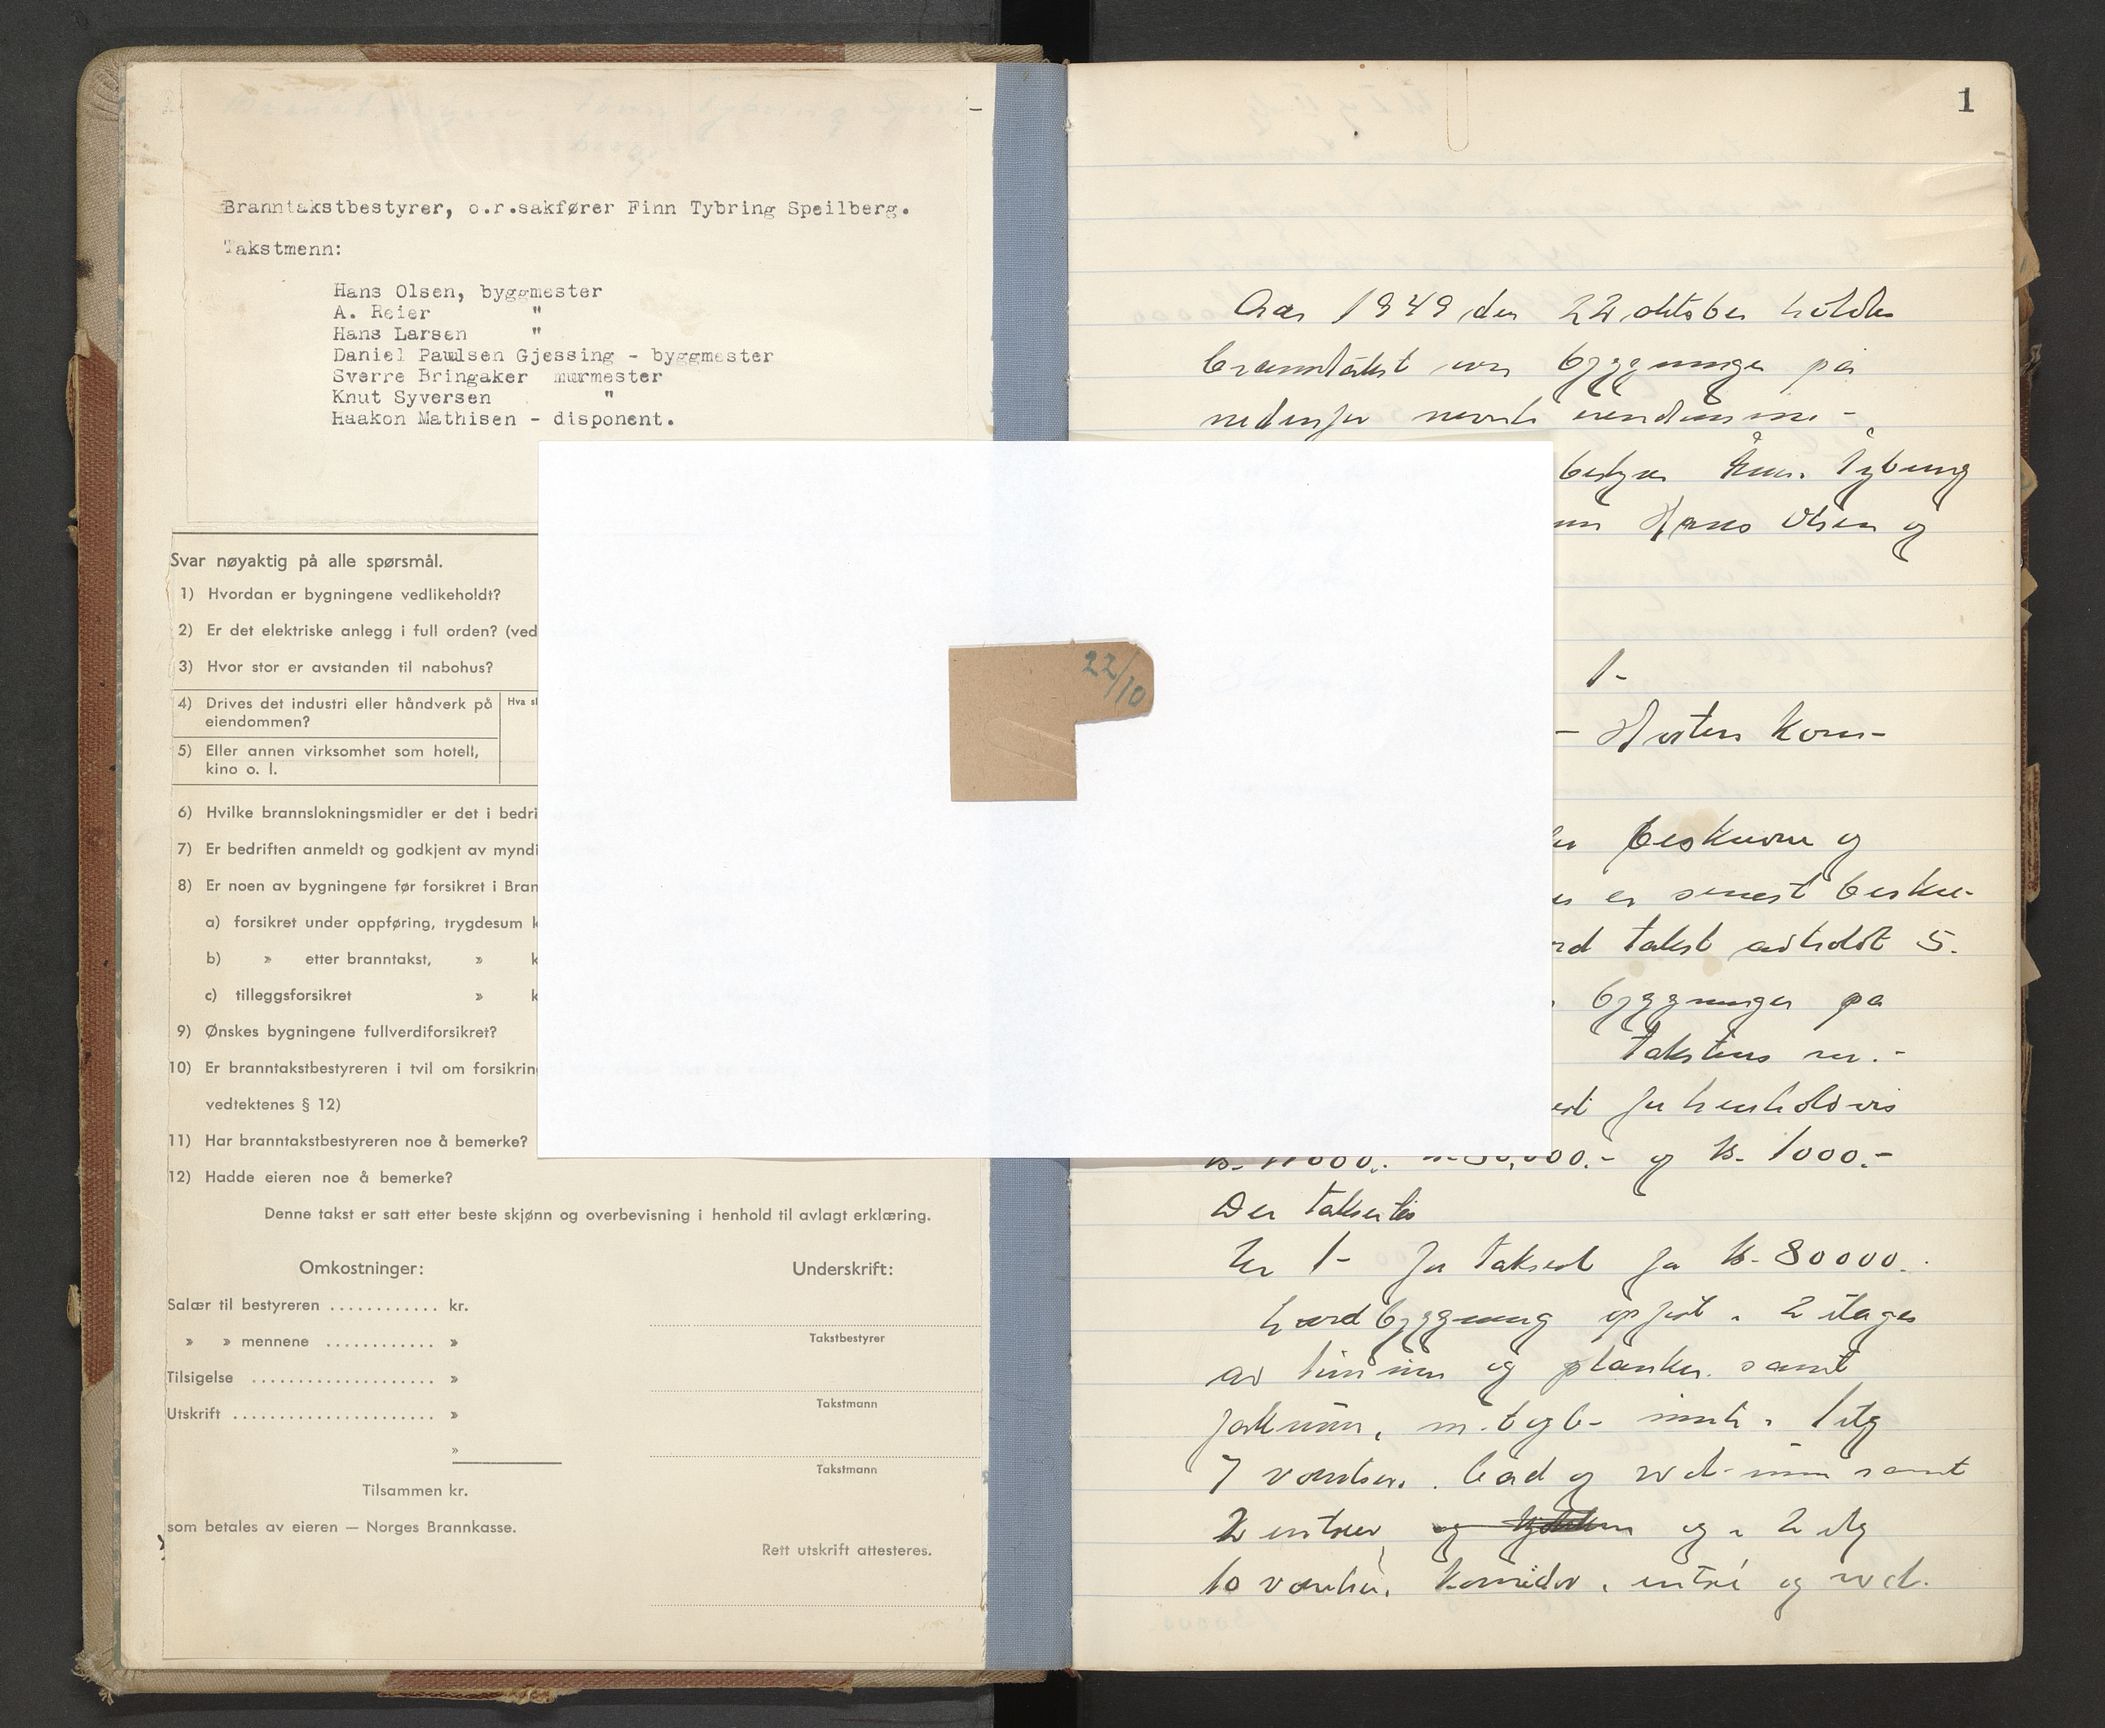 Branntakstbestyrer, o.r.sakfører Finn Tybring Speilberg.
Takstmenn:
Hans Olsen, byggmester
A. Reier "
Hans Larsen "
Daniel Paulsen Gjessing - byggmester
Sverre Bringaker murmester
Knut Syversen "
Haakon Mathisen - disponent.
Svar nøyaktig på alle spørsmål.
1) Hvordan er bygningene vedlikeholdt?
2) Er det elektriske anlegg i full orden? (ved
3) Hvor stor er avstanden til nabohus?
4) Drives det industri eller håndverk på
eiendommen?
Hva s
5) Eller annen virksomhet som hotell,
kino o. l.
6) Hvilke brannslokningsmidler er det i bedri
7) Er bedriften anmeldt og godkjent av myndi
8) Er noen av bygningene før forsikret i Bran
a) forsikret under oppføring, trygdesum k
b) » etter branntakst, » k
c) tilleggsforsikret » k
9) Ønskes bygningene fullverdiforsikret?
10) Er branntakstbestyreren i tvil om forsikrin
vedtektenes § 12)
11) Har branntakstbestyreren noe å bemerke?
12) Hadde eieren noe å bemerke?
Denne takst er satt etter beste skjønn og overbevisning i henhold til avlagt erklæring.
Omkostninger:
Salær til bestyreren ............ kr.
» » mennene ............ »
Tilsigelse .................... »
Utskrift ...................... »
»
Tilsammen kr.
som betales av eieren — Norges Brannkasse.
Underskrift:
Takstbestyrer
Takstmann
Takstmann
Rett utskrift attesteres.
22/10
1
Aar 1949 den 22 oktober holdtes
branntakst over bygninger på
nedenfor nevnte eiendomme-
bestyrer Finn Tybring
Hans Olsen og
1-
- Horten Kom-
beskrevne og
er senest beskre-
takst avholdt 5.
bygninger på
takstens nr.-
for henholdsvis
kr. 11000.- kr. 30,000.- og kr. 1000.-
Der takseres
Nr 1- før taksert for kr. 80000.
bygning opført i 2 etages
av tømmer og planker samt
m. bygt- innh. 1 etg
7 værelser, bad og w.c. samt
2 entreer, og i 2 etg
10 værelser, korridor, entré og w.c.